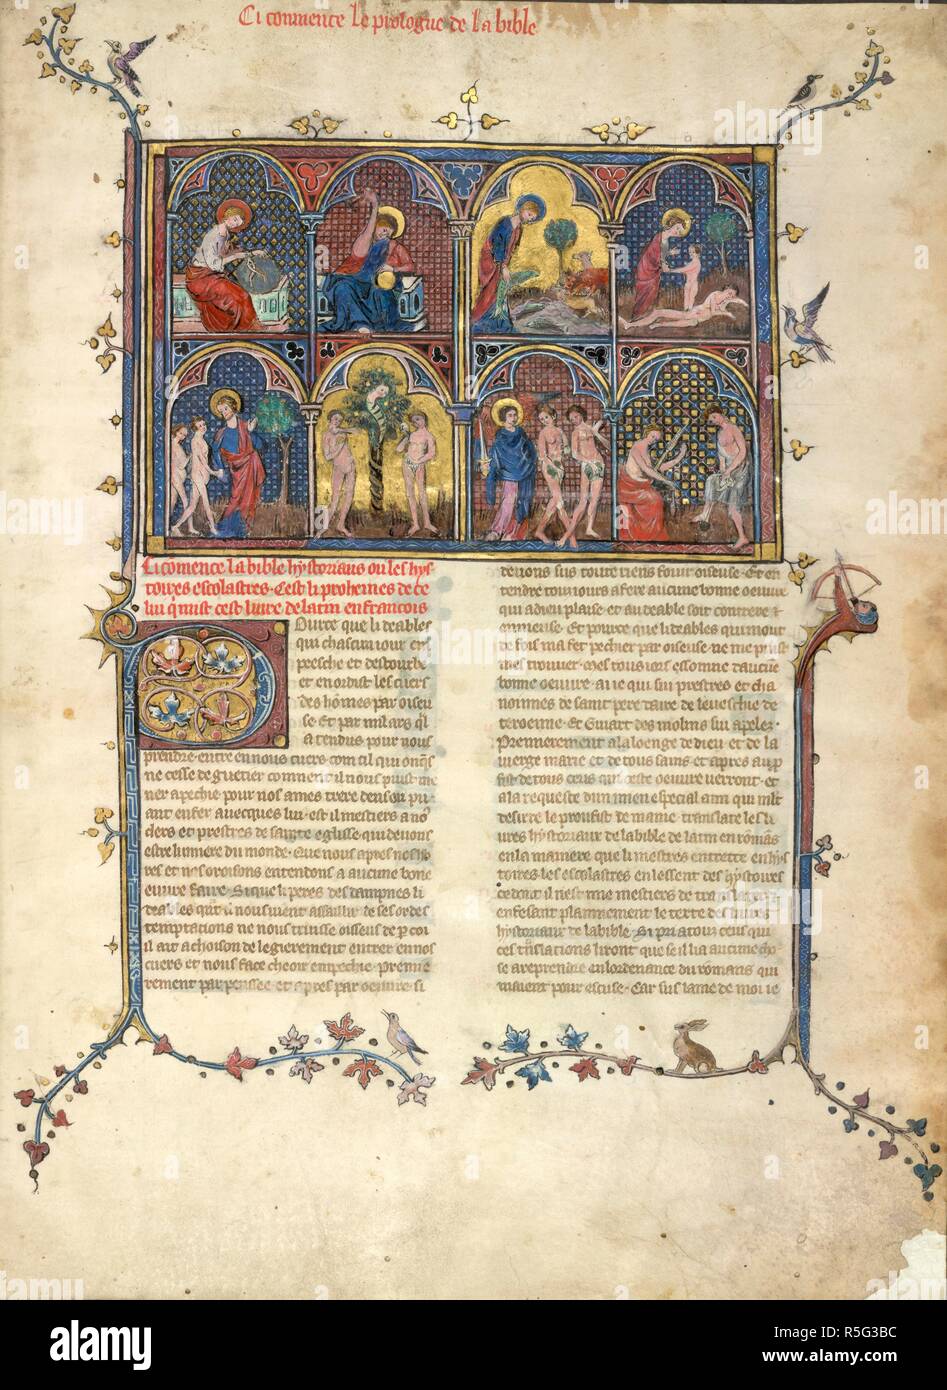 Ci commence le prologue de la bible
Ci comence la bible hystoriaus ou les hys
toires escolastres. Cest li prohemes de ce
lui q mist cest livre de latin en francois
Pource que li deables
qui chascun iour en
pesche et destourbe
et en ordist les cuers
des hommes par oiseu
se et par mil ars qil
a tendus pour nous
prendre entre en nous cuers com cil qui onqs
ne cesse de guetier comment il nous puist me
ner a pechie pour nos ames trere
ant enfer avecques lui. est il mestiers a no9
clers et prestres de sainte eglise qui devons
estre lumiere du monde. Que nous apres nos
res et nos oroisons entendons a aucune bone
euvre faire. Si que li peres des dampnes li
deables qnt il nous vient assaillir de ses ordes
temptations ne nous truisse oiseus de p coi
il ait achoison de legierement entrer en nos
cuers et nous face cheoir en pechie. premie
rement par pensee et apres par oeuvre. si
devons sus toute riens fouir oiseuse. Et en
tendre touriours a fere aucune bonne oeuvre
qui a dieu plaise et au deable soit contrere
ennuieuse. Et pource que li deables qui mout
de fois ma fet pechier par oiseuse ne me puist
mes trouver. mes tous iers essomne daucune
bonne oeuvre. ai ie qui sui prestres et cha
noinnes de saint pere daire de leveschie de
teroenne. Et Guiart des molins sui apelez.
Premierement a la loenge de dieu et de la
vierge marie et de tous sains et apres au p
fit de tous ceus qui ceste oeuvre verront. et
a la requeste dun mien especial ami qui mlt
desirre le proufist de mame. translate les li
vres hystoriaus de la bible de latin en romans
en la maniere que li mestres en trette en hys
toires les escolastres en lessent des hystoires
ce dont il nest mie mestiers de translater. et
enfesant plainnement le texte des livres
hystoriaus de la bible. Si pri a tous ceus qui
ces tnslations liront que se il i a aucune cho
se a reprendre en lordenance du romans qui
maient pour escuse. Car sus lame de moi ie
alamy
Image ID: R5G3BC
www.alamy.com